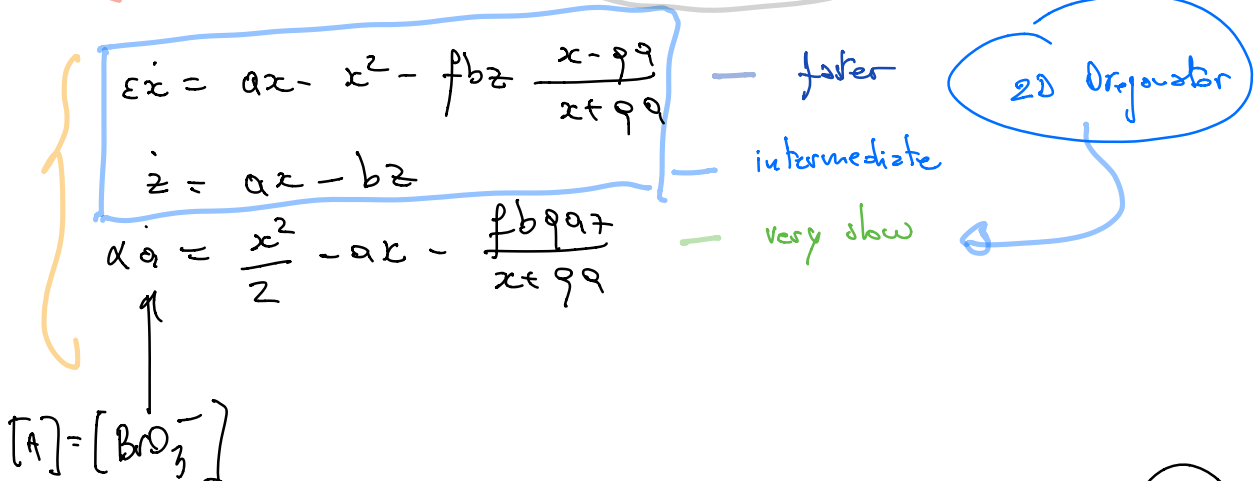 εẋ = ax - x² - fbz (x - qa)/(x + qa) — faster
2D Oregonator
ż = ax - bz — intermediate
αȧ = x²/2 - ax - fbqaz/(x + qa) — very slow
[A] = [BrO₃⁻]